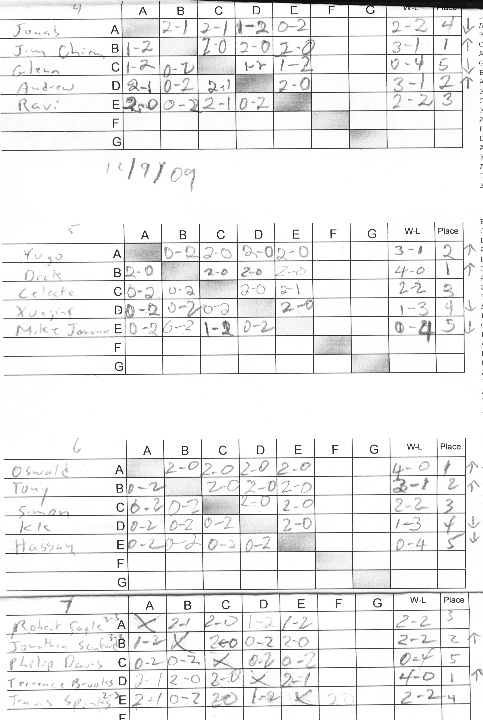 4 A B C D E F G W-L Place
Jonas A 2-1 2-1 1-2 0-2 2-2 4 ↓
Jim Chien B 1-2 2-0 2-0 2-0 3-1 1 ↑
Glenn C 1-2 0-2 1-2 1-2 0-4 5 ↓
Andrew D 2-1 0-2 2-1 2-0 3-1 2 ↑
Ravi E 2-0 0-2 2-1 0-2 2-2 3
F
G
12/9/09
5
A B C D E F G W-L Place
Yugo A 0-2 2-0 2-0 2-0 3-1 2 ↑
B 2-0 2-0 2-0 2-0 4-0 1 ↑
Celeste C 0-2 0-2 2-0 2-1 2-2 3
D 0-2 0-2 0-2 2-0 1-3 4 ↓
Mike E 0-2 0-2 1-2 0-2 0-4 5 ↓
F
G
6
A B C D E F G W-L Place
Oswald A 2-0 2-0 2-0 2-0 4-0 1 ↑
Tony B 0-2 2-0 2-0 2-0 3-1 2 ↑
Simon C 0-2 0-2 2-0 2-0 2-2 3
KK D 0-2 0-2 0-2 2-0 1-3 4 ↓
Hassan E 0-2 0-2 0-2 0-2 0-4 5 ↓
F
G
7 A B C D E F G W-L Place
Robert A X 2-1 2-0 1-2 1-2 2-2 3
Jonathan B 1-2 X 2-0 0-2 2-0 2-2 2 ↑
Philip Davis C 0-2 0-2 X 0-2 0-2 0-4 5
Terrence Brooks D 2-1 2-0 2-0 X 2-1 4-0 1 ↑
E 2-1 0-2 2-0 1-2 X 2-2 4
F